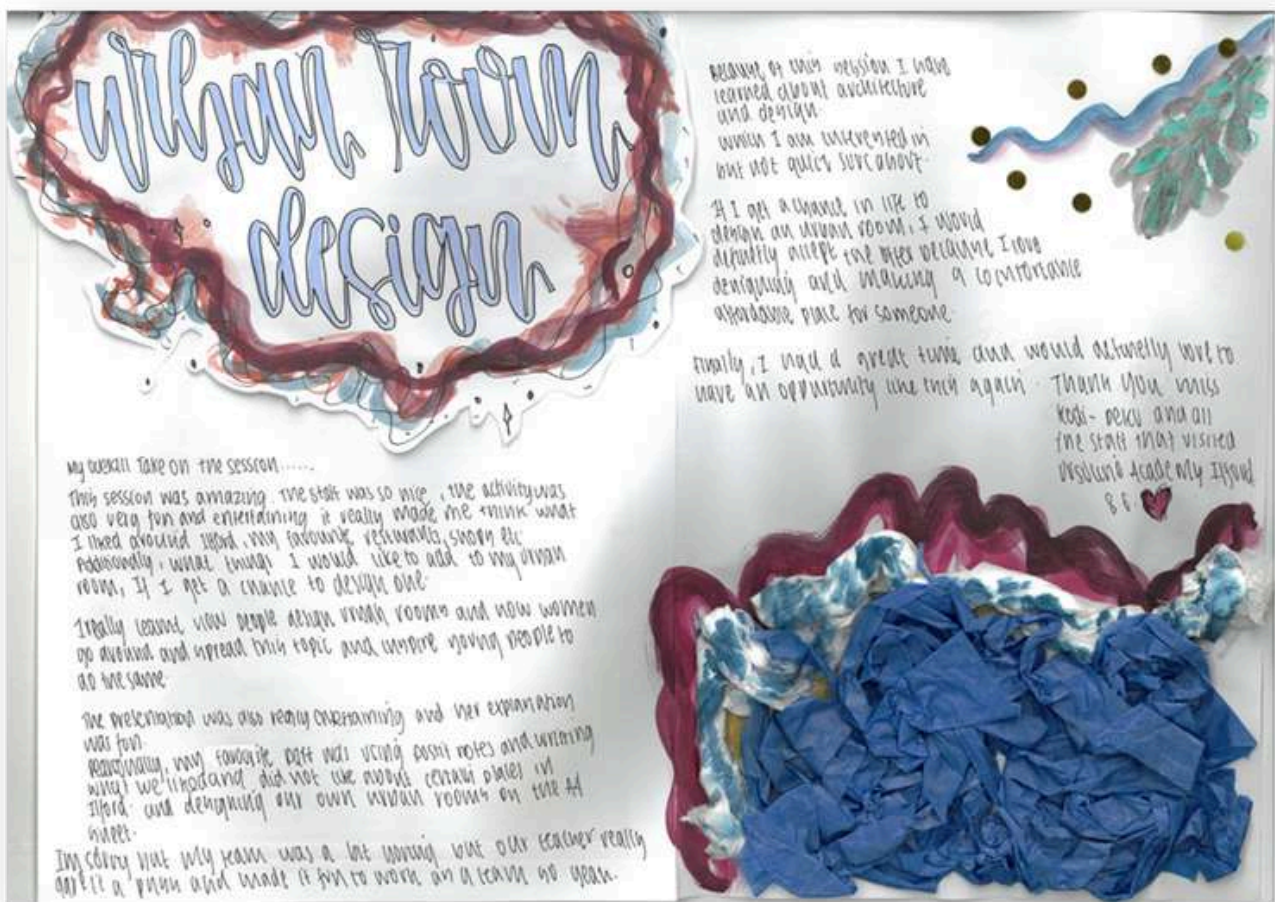 urban room
design
My overall Take on the session......
This session was amazing. The staff was so nice, the activity was
also very fun and entertaining it really made me think what
I liked around Ilford, my favourite resturants, shops etc
Additionally, what things I would like to add to my urban
room, If I get a chance to design one.
I really learnt how people design urban rooms and how women
go around and spread this topic and inspire young people to
do the same.
The presentation was also really entertaining and her explanation
was fun.
my favourite part was using postit notes and writing
what we liked and did not like about certain places in
Ilford. and designing our own urban rooms on the A4
sheet.
Im sorry but my team was a bit boring but our teacher really
gave it a push and made it fun to work as a team so yeah.
Because of this session I have
learned about architecture
and design.
which I am interested in
but not quite sure about.
If I get a chance in life to
design an urban room, I would
definetly accept the offer because I love
designing and making a comfortable
affordable place for someone.
Finally, I had a great time and would actuelly love to
have an opportunity like this again. Thank You miss
and all
the staff that visited
Academy Ilford